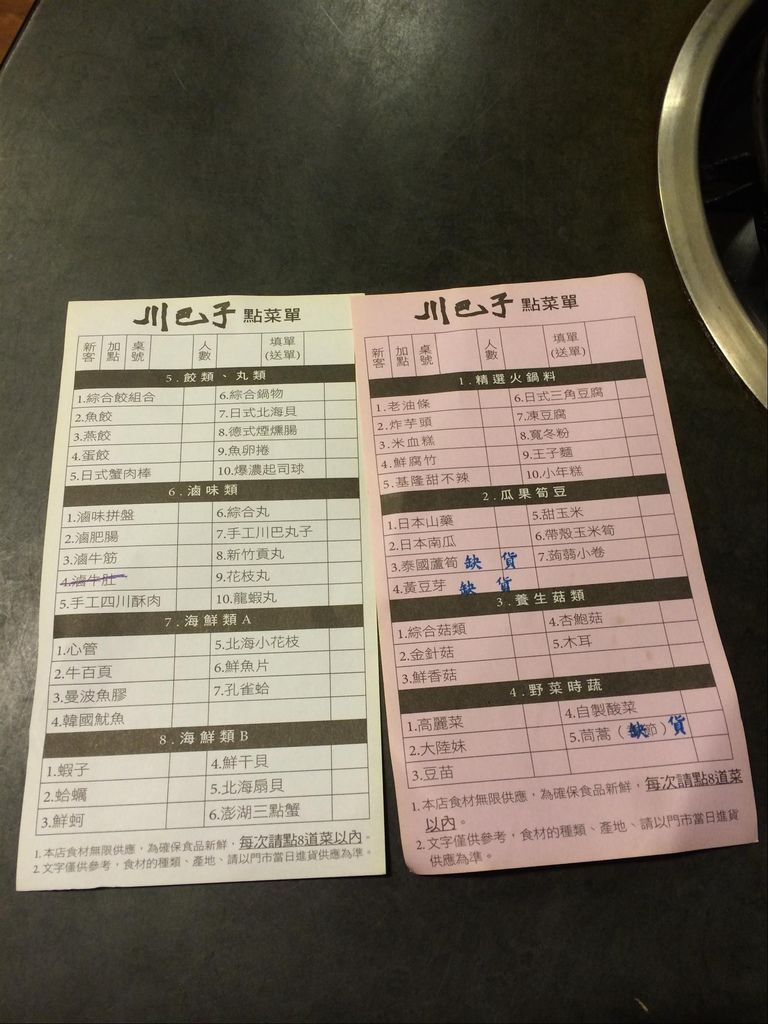 川巴子 點菜單
新客 加點 桌號 人數 填單(送單)
5.餃類、丸類
1.綜合餃組合 6.綜合鍋物
2.魚餃 7.日式北海貝
3.燕餃 8.德式煙燻腸
4.蛋餃 9.魚卵捲
5.日式蟹肉棒 10.爆濃起司球
6.滷味類
1.滷味拼盤 6.綜合丸
2.滷肥腸 7.手工川巴丸子
3.滷牛筋 8.新竹貢丸
4.滷牛肚 9.花枝丸
5.手工四川酥肉 10.龍蝦丸
7.海鮮類A
1.心管 5.北海小花枝
2.牛百頁 6.鮮魚片
3.曼波魚膠 7.孔雀蛤
4.韓國魷魚
8.海鮮類B
1.蝦子 4.鮮干貝
2.蛤蠣 5.北海扇貝
3.鮮蚵 6.澎湖三點蟹
1.本店食材無限供應，為確保食品新鮮，每次請點8道菜以內。
2.文字僅供參考，食材的種類、產地、請以門市當日進貨供應為準。
川巴子 點菜單
新客 加點 桌號 人數 填單(送單)
1.精選火鍋料
1.老油條 6.日式三角豆腐
2.炸芋頭 7.凍豆腐
3.米血糕 8.寬冬粉
4.鮮腐竹 9.王子麵
5.基隆甜不辣 10.小年糕
2.瓜果筍豆
1.日本山藥 5.甜玉米
2.日本南瓜 6.帶殼玉米筍
3.泰國蘆筍 缺貨 7.蒟蒻小卷
4.黃豆芽 缺貨
3.養生菇類
1.綜合菇類 4.杏鮑菇
2.金針菇 5.木耳
3.鮮香菇
4.野菜時蔬
1.高麗菜 4.自製酸菜
2.大陸妹 5.茼蒿(季節) 缺貨
3.豆苗
1.本店食材無限供應，為確保食品新鮮，每次請點8道菜
以內。
2.文字僅供參考，食材的種類、產地、請以門市當日進貨
供應為準。